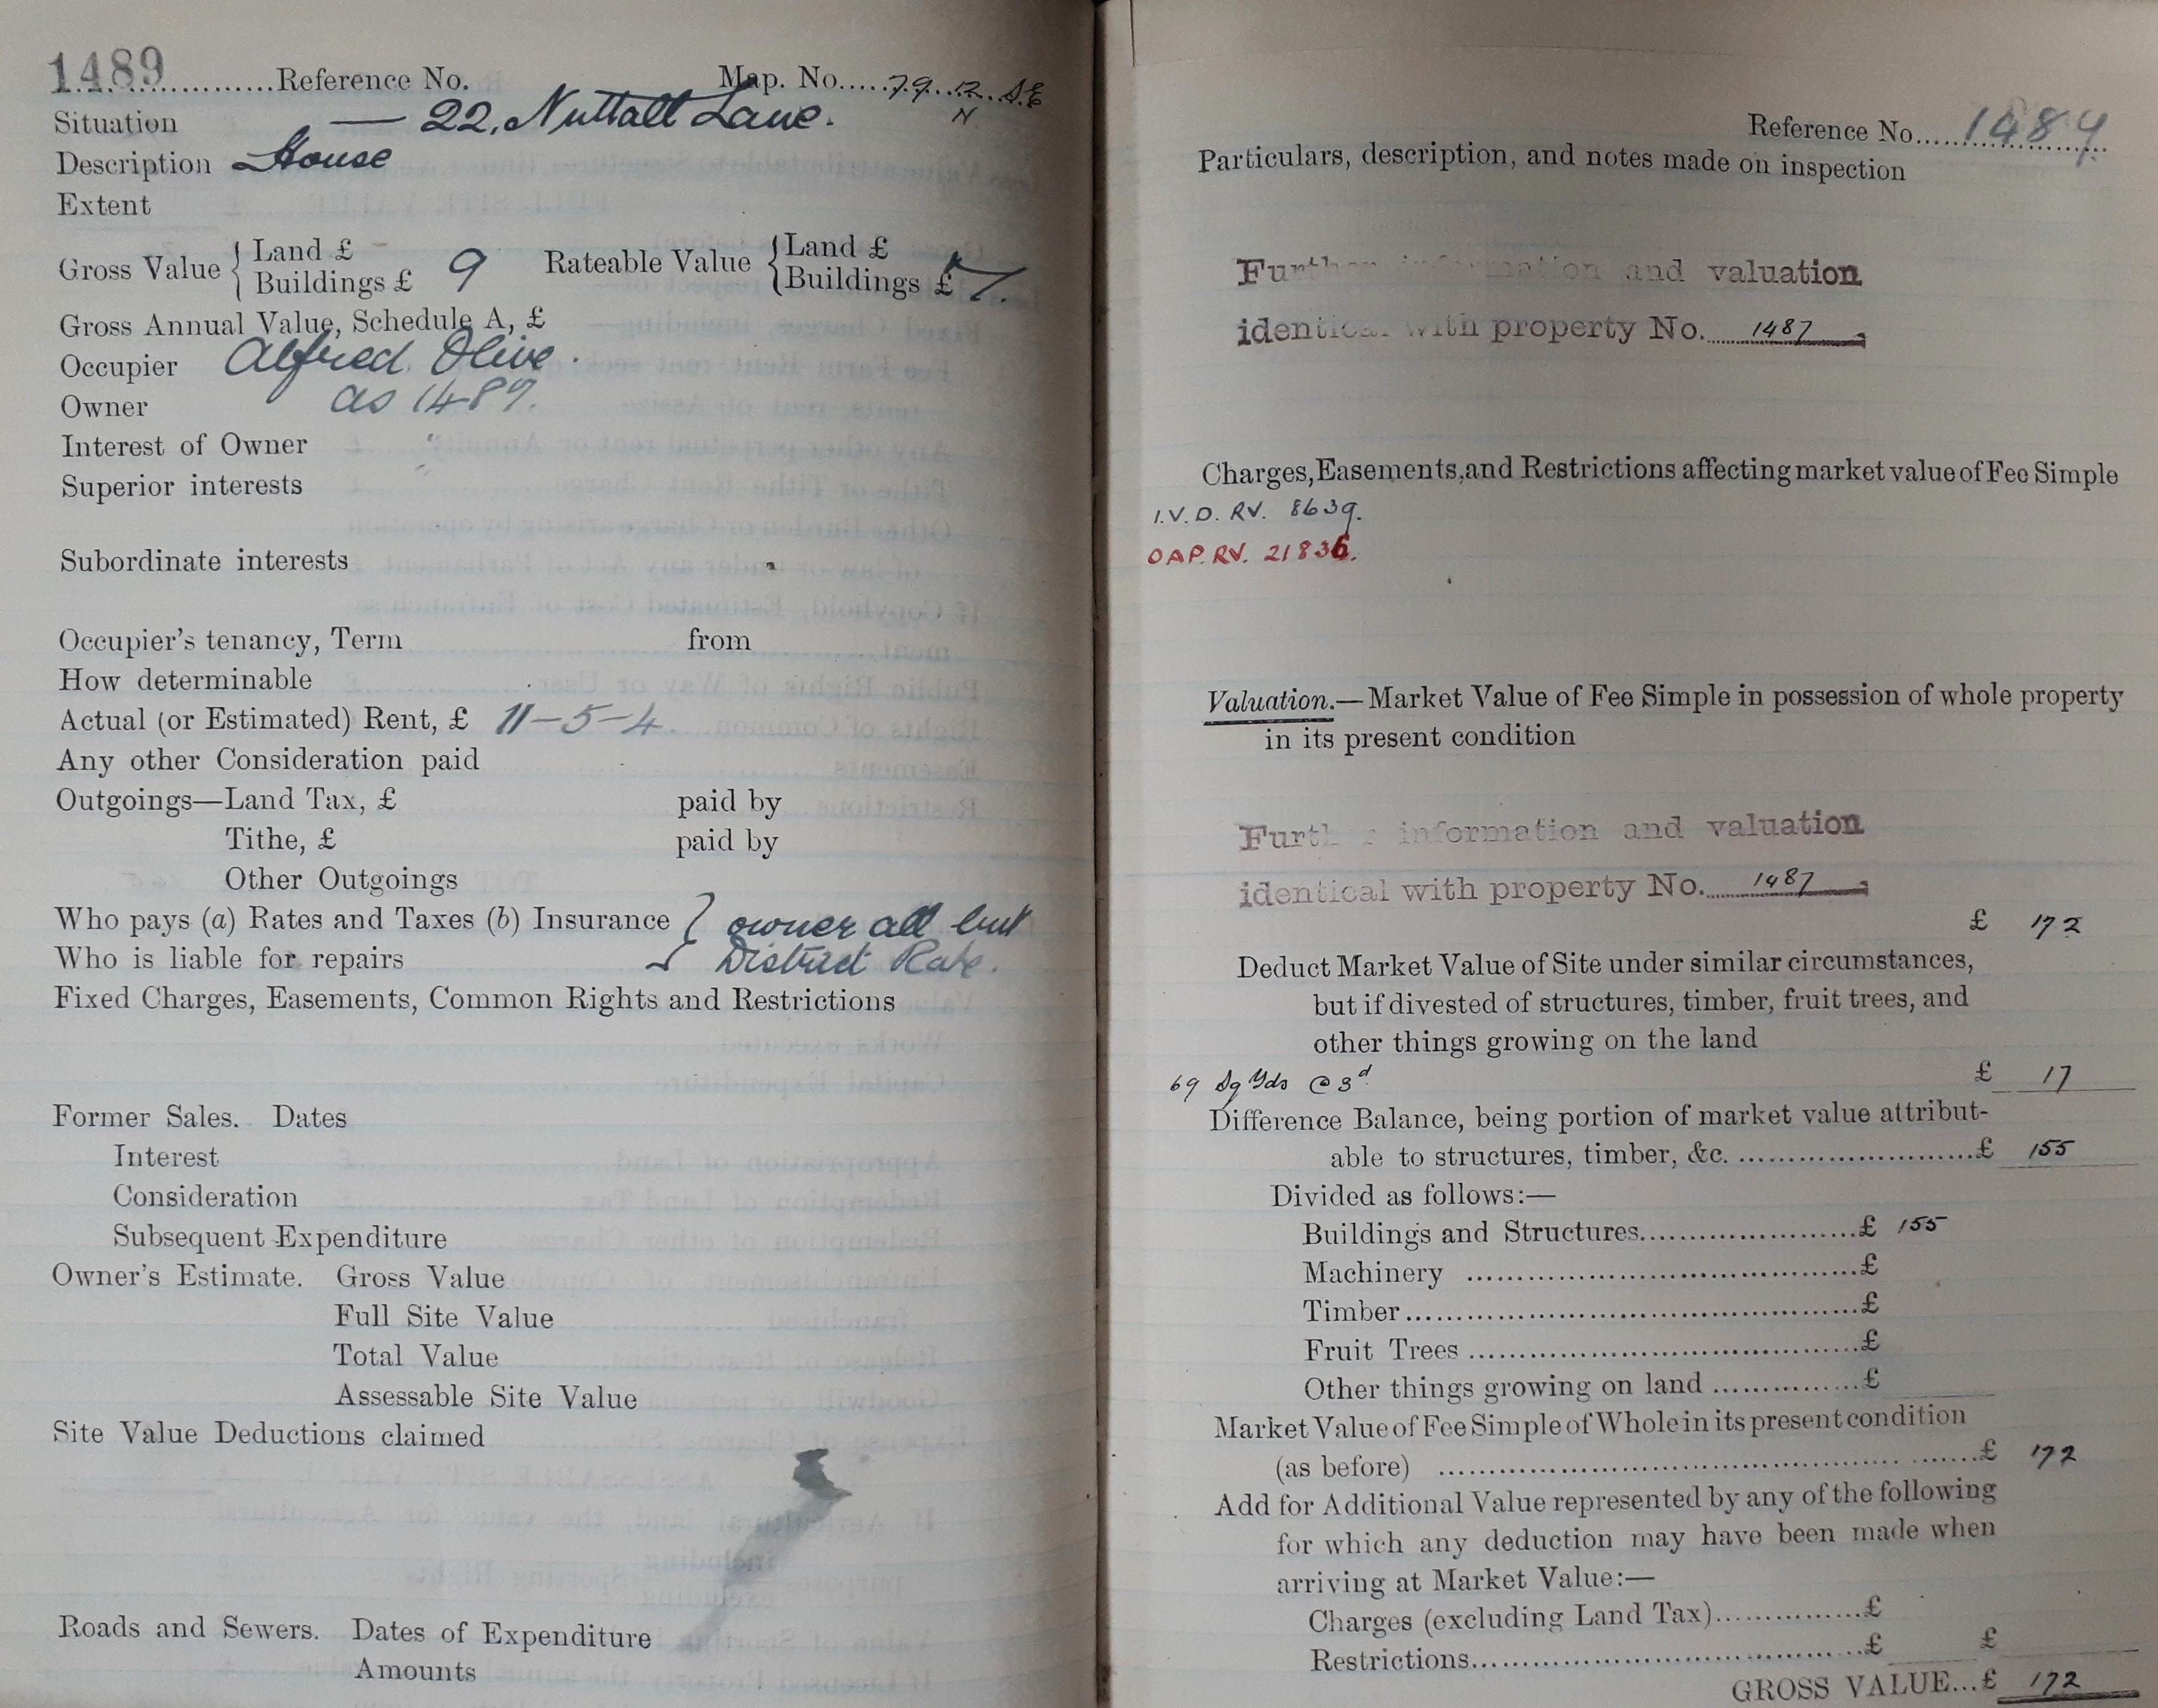 1489 Reference No. Map. No. 79.12. S.E
N
Situation — 22, Nuttall Lane.
Description House
Extent
Gross Value { Land £ Rateable Value { Land £
Buildings £ 9 Buildings £ 7.
Gross Annual Value, Schedule A, £
Occupier Alfred Olive.
Owner as 1487.
Interest of Owner "
Superior interests "
Subordinate interests
Occupier's tenancy, Term from
How determinable
Actual (or Estimated) Rent, £ 11-5-4.
Any other Consideration paid
Outgoings—Land Tax, £ paid by
Tithe, £ paid by
Other Outgoings
Who pays (a) Rates and Taxes (b) Insurance } owner all but
Who is liable for repairs District Rate.
Fixed Charges, Easements, Common Rights and Restrictions
Former Sales. Dates
Interest
Consideration
Subsequent Expenditure
Owner's Estimate. Gross Value
Full Site Value
Total Value
Assessable Site Value
Site Value Deductions claimed
Roads and Sewers. Dates of Expenditure
Amounts
Reference No. 1489
Particulars, description, and notes made on inspection
Further information and valuation
identical with property No. 1487
Charges, Easements, and Restrictions affecting market value of Fee Simple
I.V.D. RV. 8639.
OAP. RV. 21836.
Valuation.—Market Value of Fee Simple in possession of whole property
in its present condition
Further information and valuation
identical with property No. 1487
£ 172
Deduct Market Value of Site under similar circumstances,
but if divested of structures, timber, fruit trees, and
other things growing on the land
69 Sq Yds @ 3d £ 17
Difference Balance, being portion of market value attribut-
able to structures, timber, &c. £ 155
Divided as follows:—
Buildings and Structures £ 155
Machinery £
Timber £
Fruit Trees £
Other things growing on land £
Market Value of Fee Simple of Whole in its present condition
(as before) £ 172
Add for Additional Value represented by any of the following
for which any deduction may have been made when
arriving at Market Value:—
Charges (excluding Land Tax) £
Restrictions £ £
GROSS VALUE...£ 172